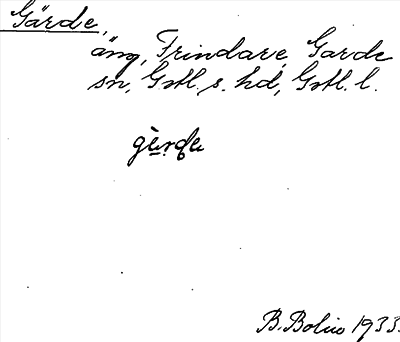 Gärde,
äng, Frindare, Garde
sn, Gotl. s. hd, Gotl. l.
gèrde
B. Bolin 1933.